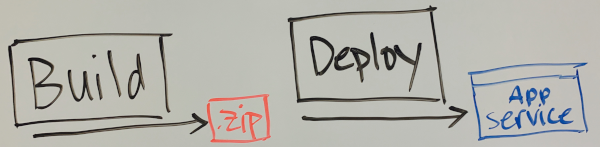 Build
.zip
Deploy
App
Service